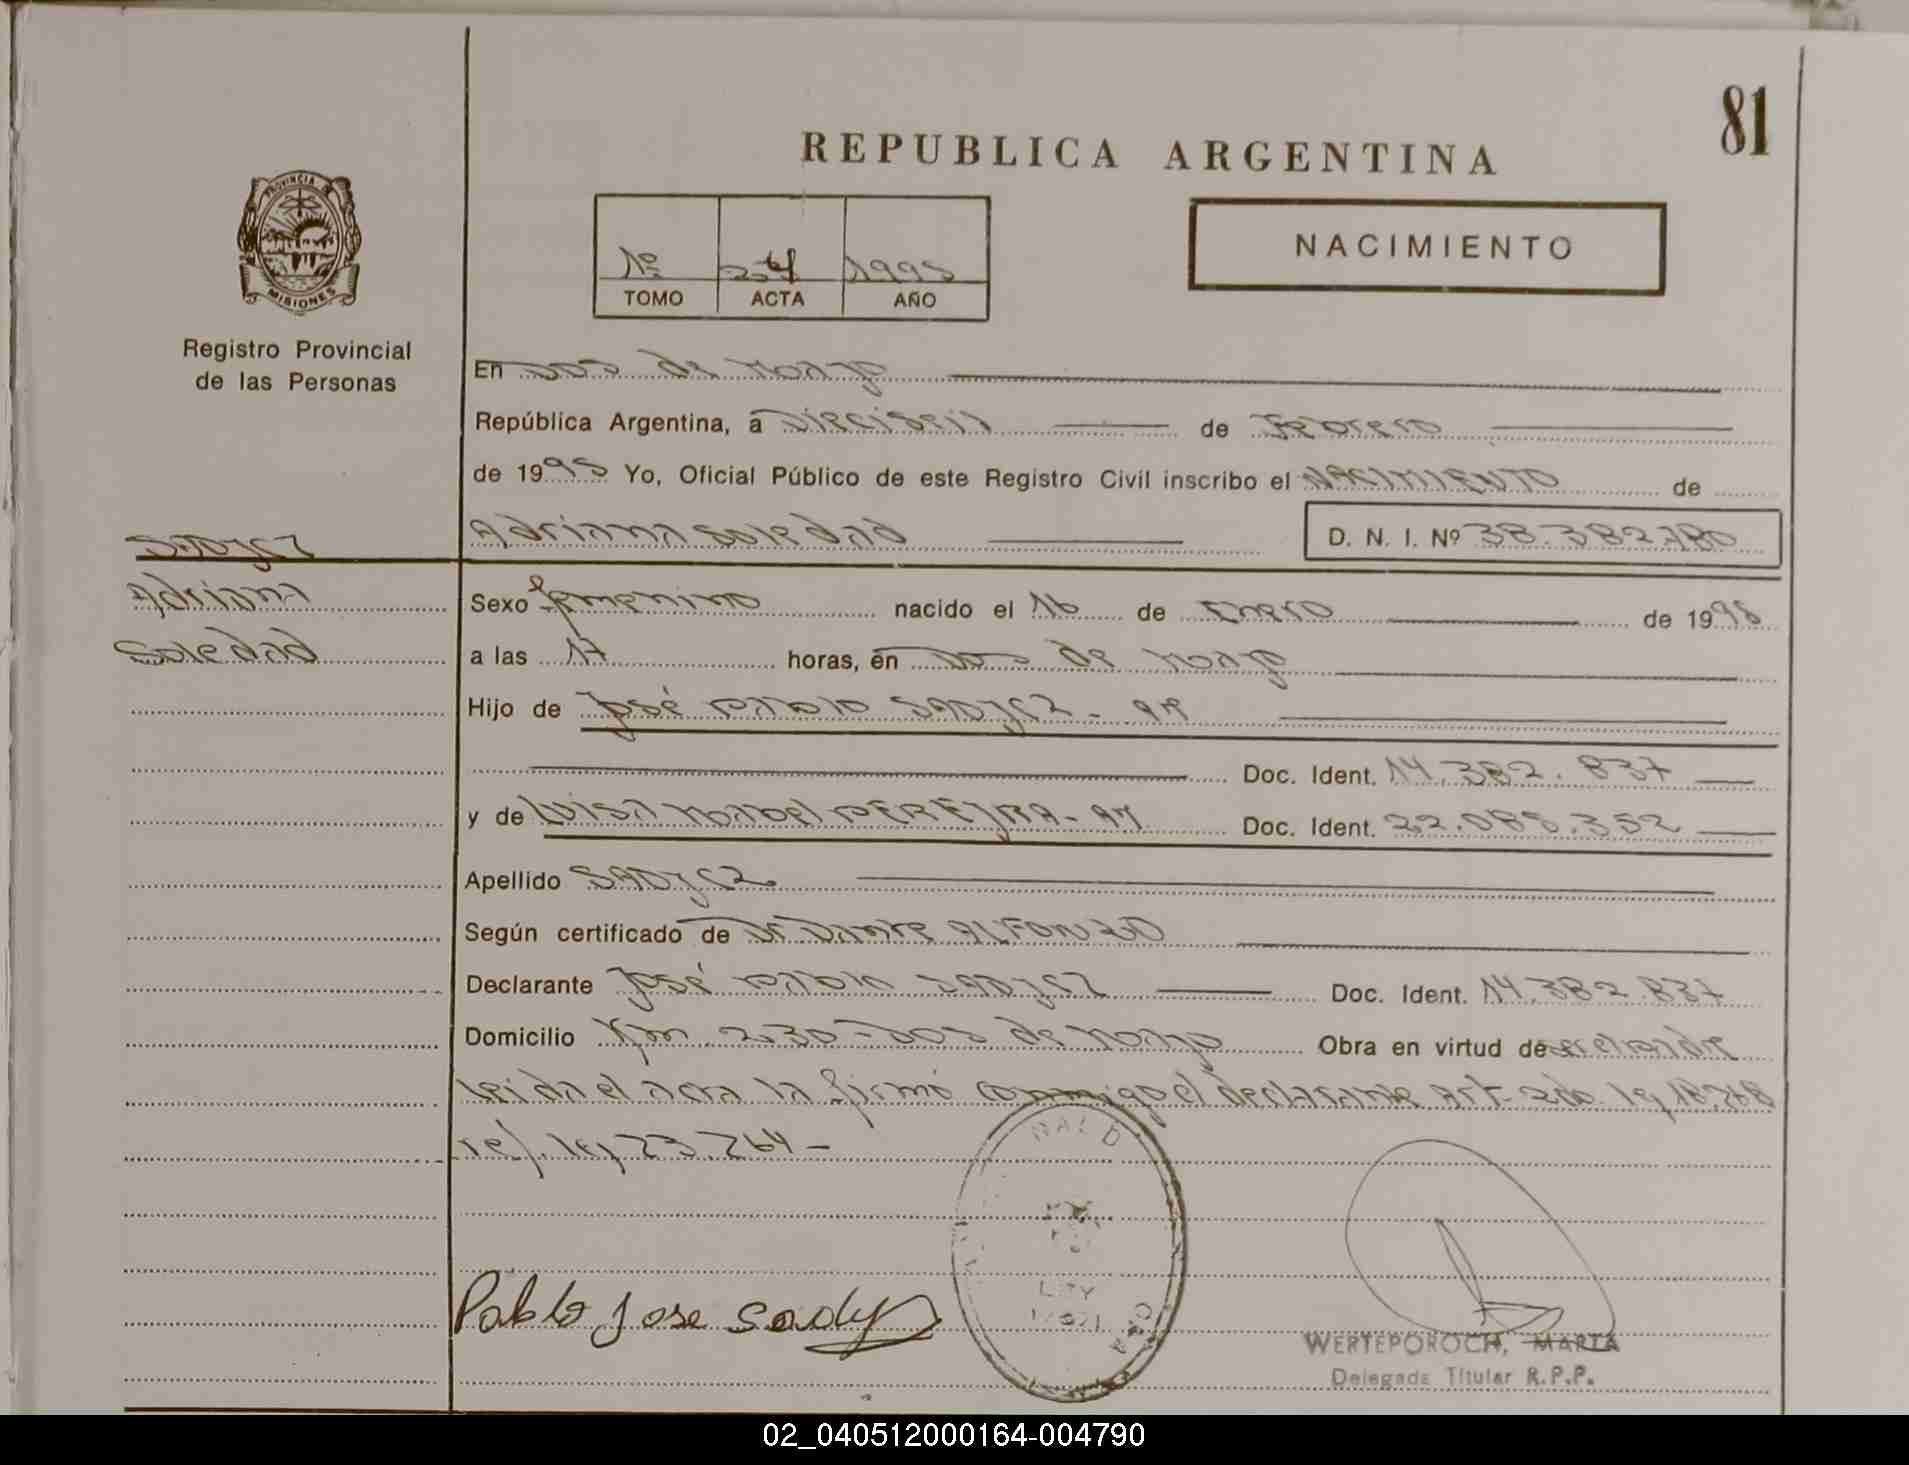 81
REPUBLICA ARGENTINA
PROVINCIA DE
MISIONES
Registro Provincial
de las Personas
1º 1995
TOMO ACTA AÑO
NACIMIENTO
En Dos de Mayo
República Argentina, a Dieciseis de Febrero
de 1995 Yo, Oficial Público de este Registro Civil inscribo el NACIMIENTO de
Adriana Soledad D. N. I. Nº 38.382.780
SADYCZ
Adriana
Soledad
Sexo femenino nacido el 16 de Enero de 1995
a las 17 horas, en Dos de Mayo
Hijo de José Pablo SADYCZ - AR
Doc. Ident. 14.382.837
y de Luisa Mabel PEREYRA - Doc. Ident. 22.085.352
Apellido SADYCZ
Según certificado de Dr Dante ALFONZO
Declarante José Pablo SADYCZ Doc. Ident. 14.382.837
Domicilio Km. 230 - Dos de Mayo Obra en virtud de ser el padre
leida el acta la firmó conmigo el declarante Art. 2do ley 18.248
ref. ley 23.264 -
Pablo Jose Sadycz
WERTEPOROCH, MARTA
Delegada Titular R.P.P.
02_040512000164-004790